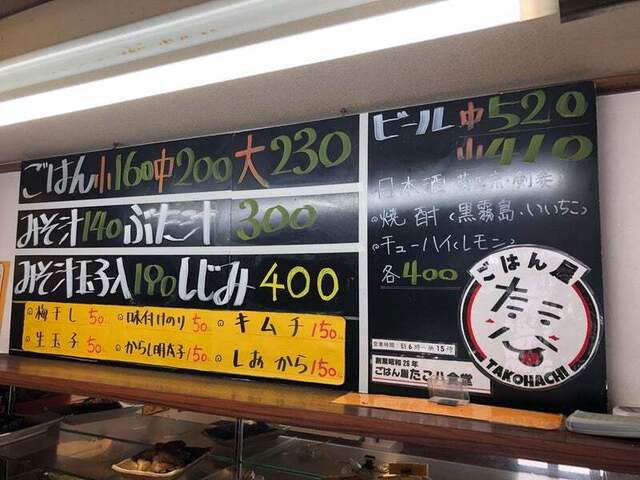 ごはん 小160 中200 大230
みそ汁140 ぶた汁 300
みそ汁玉子入 190 しじみ 400
梅干し 50 味付けのり 50 キムチ 150
生玉子 50 からし明太子 150 しおから 150
ビール 中520
小410
日本酒
焼酎(黒霧島・いいちこ)
チューハイ(レモン)
各400
ごはん屋
たこ八
TAKOHACHI
営業時間 朝6時〜夜15時
創業昭和26年
ごはん屋たこ八食堂